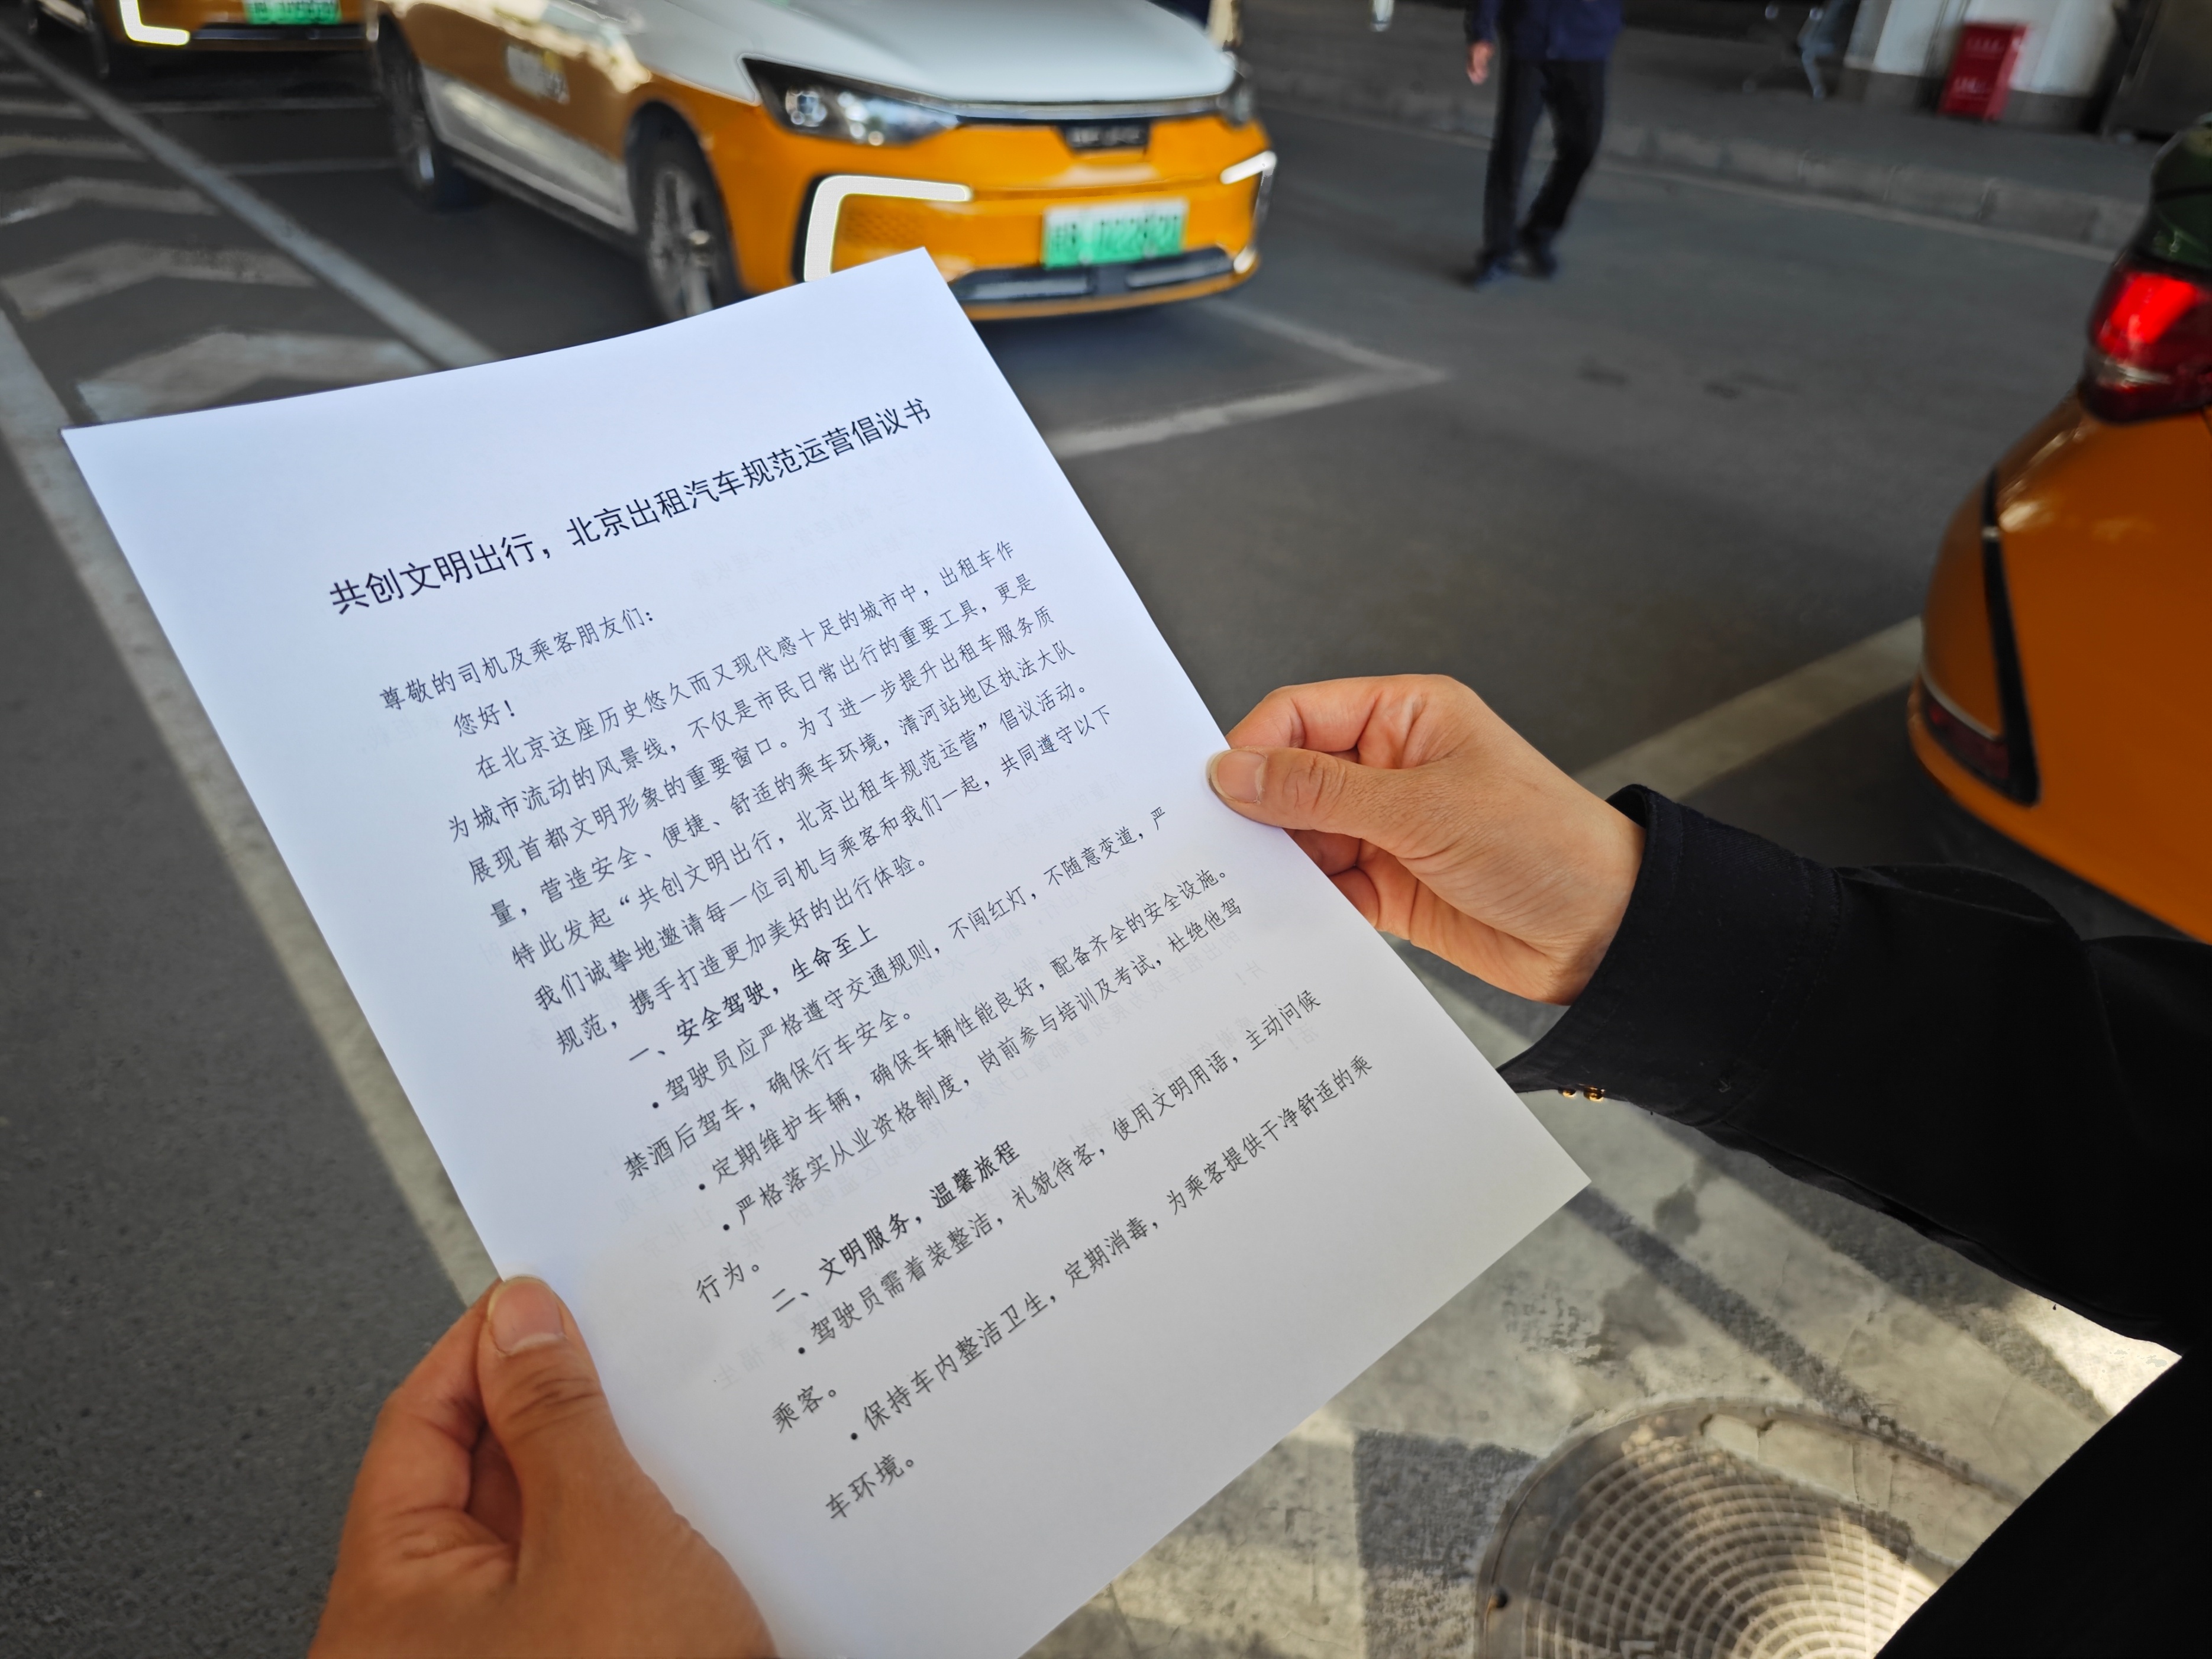 共创文明出行，北京出租汽车规范运营倡议书
尊敬的司机及乘客朋友们：
您好！
在北京这座历史悠久而又现代感十足的城市中，出租车作
为城市流动的风景线，不仅是市民日常出行的重要工具，更是
展现首都文明形象的重要窗口。为了进一步提升出租车服务质
量，营造安全、便捷、舒适的乘车环境，清河站地区执法大队
特此发起“共创文明出行，北京出租车规范运营”倡议活动。
我们诚挚地邀请每一位司机与乘客和我们一起，共同遵守以下
规范，携手打造更加美好的出行体验。
一、安全驾驶，生命至上
•驾驶员应严格遵守交通规则，不闯红灯，不随意变道，严
禁酒后驾车，确保行车安全。
•定期维护车辆，确保车辆性能良好，配备齐全的安全设施。
•严格落实从业资格制度，岗前参与培训及考试，杜绝他驾
行为。
二、文明服务，温馨旅程
•驾驶员需着装整洁，礼貌待客，使用文明用语，主动问候
乘客。
•保持车内整洁卫生，定期消毒，为乘客提供干净舒适的乘
车环境。